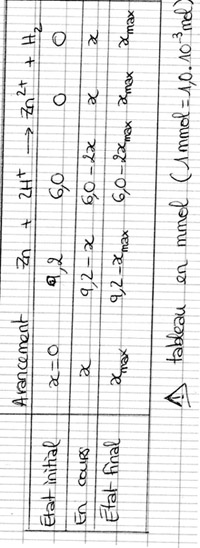 Avancement Zn + 2H⁺ → Zn²⁺ + H₂
État initial x = 0 9,2 6,0 0 0
En cours x 9,2 - x 6,0 - 2x x x
État final xmax 9,2 - xmax 6,0 - 2xmax xmax xmax
⚠ tableau en mmol (1 mmol = 1,0.10⁻³ mol)